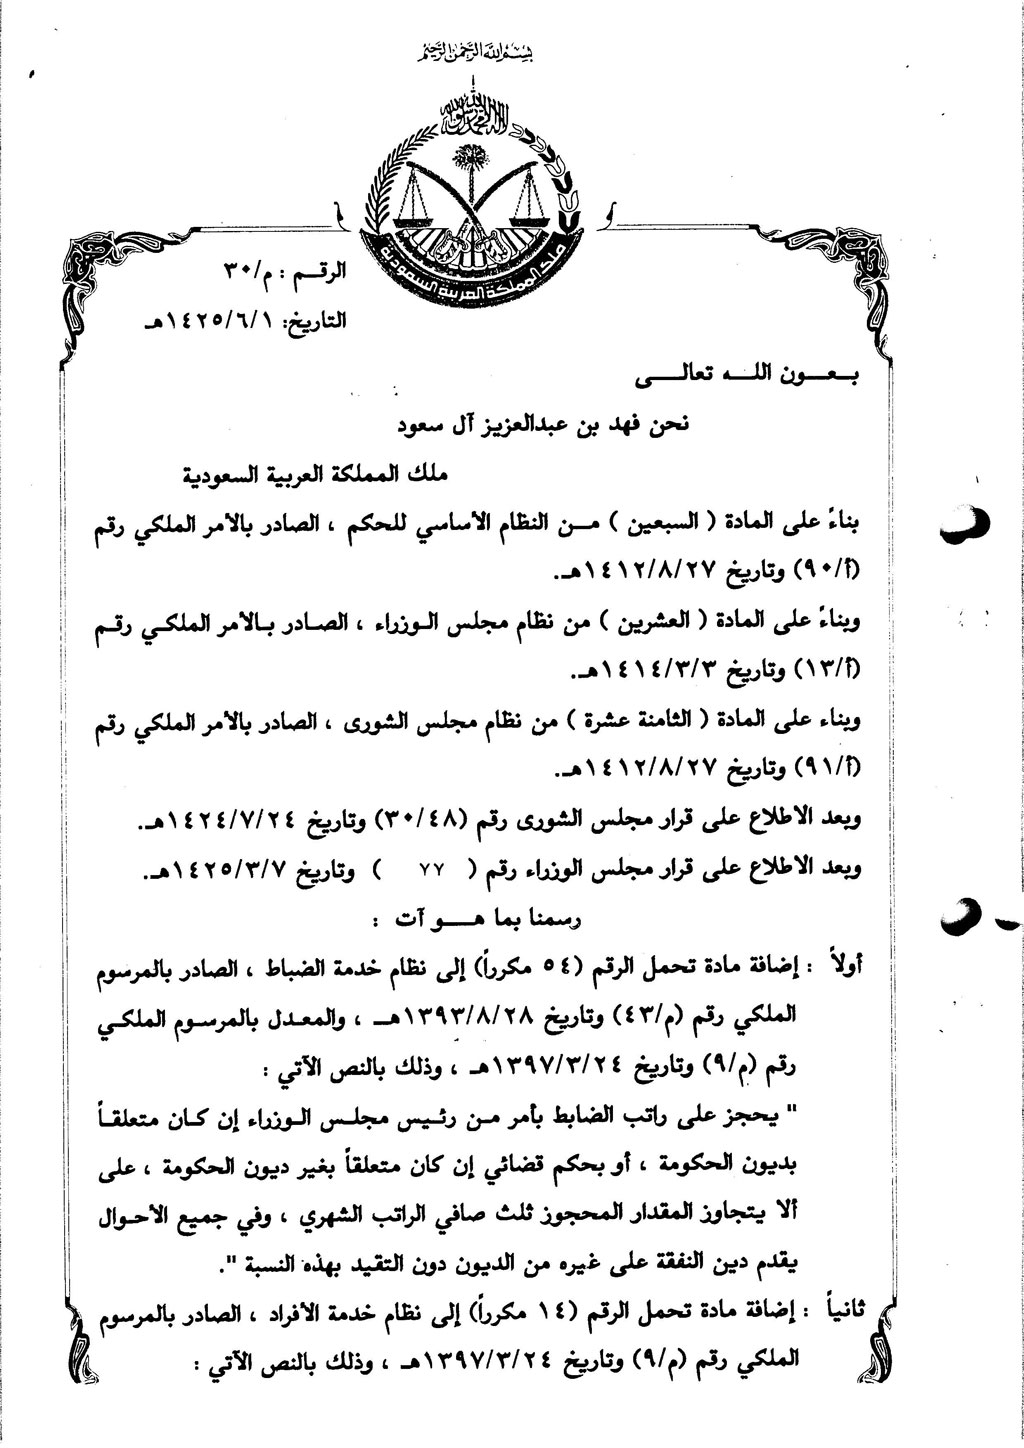 بسم الله الرحمن الرحيم
لا إله إلا الله محمد رسول الله
ملك المملكة العربية السعودية
الرقـم : م/٣٠
التاريخ: ١٤٢٥/٦/١هـ
بعون الله تعالى
نحن فهد بن عبدالعزيز آل سعود
ملك المملكة العربية السعودية
بناءً على المادة ( السبعين ) من النظام الأساسي للحكم ، الصادر بالأمر الملكي رقم
(أ/٩٠) وتاريخ ١٤١٢/٨/٢٧هـ.
وبناءً على المادة ( العشرين ) من نظام مجلس الوزراء ، الصادر بالأمر الملكي رقم
(أ/١٣) وتاريخ ١٤١٤/٣/٣هـ.
وبناء على المادة ( الثامنة عشرة ) من نظام مجلس الشورى ، الصادر بالأمر الملكي رقم
(أ/٩١) وتاريخ ١٤١٢/٨/٢٧هـ.
وبعد الاطلاع على قرار مجلس الشورى رقم (٣٠/٤٨) وتاريخ ١٤٢٤/٧/٢٤هـ.
وبعد الاطلاع على قرار مجلس الوزراء رقم ( ٧٧ ) وتاريخ ١٤٢٥/٣/٧هـ.
رسمنا بما هو آت :
أولاً : إضافة مادة تحمل الرقم (٥٤ مكرراً) إلى نظام خدمة الضباط ، الصادر بالمرسوم
الملكي رقم (م/٤٣) وتاريخ ١٣٩٣/٨/٢٨هـ ، والمعدل بالمرسوم الملكي
رقم (م/٩) وتاريخ ١٣٩٧/٣/٢٤هـ ، وذلك بالنص الآتي :
" يحجز على راتب الضابط بأمر من رئيس مجلس الوزراء إن كان متعلقاً
بديون الحكومة ، أو بحكم قضائي إن كان متعلقاً بغير ديون الحكومة ، على
ألا يتجاوز المقدار المحجوز ثلث صافي الراتب الشهري ، وفي جميع الأحوال
يقدم دين النفقة على غيره من الديون دون التقيد بهذه النسبة ".
ثانياً : إضافة مادة تحمل الرقم (١٤ مكرراً) إلى نظام خدمة الأفراد ، الصادر بالمرسوم
الملكي رقم (م/٩) وتاريخ ١٣٩٧/٣/٢٤هـ ، وذلك بالنص الآتي :